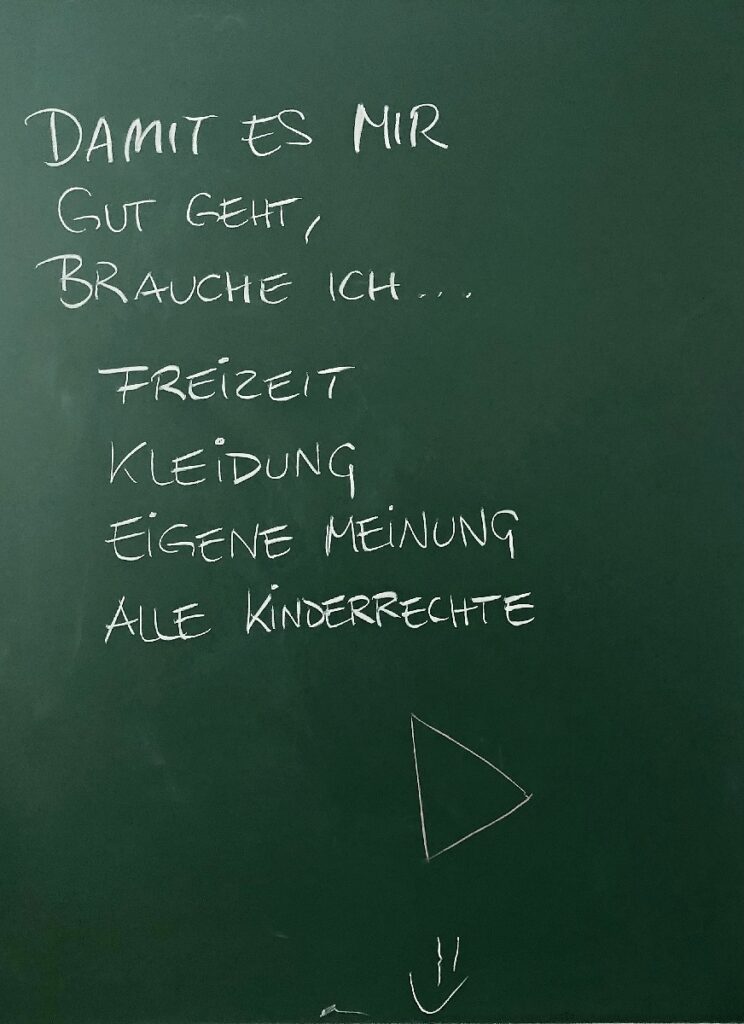 DAMIT ES MIR
GUT GEHT,
BRAUCHE ICH...
FREIZEIT
KLEIDUNG
EIGENE MEINUNG
ALLE KINDERRECHTE